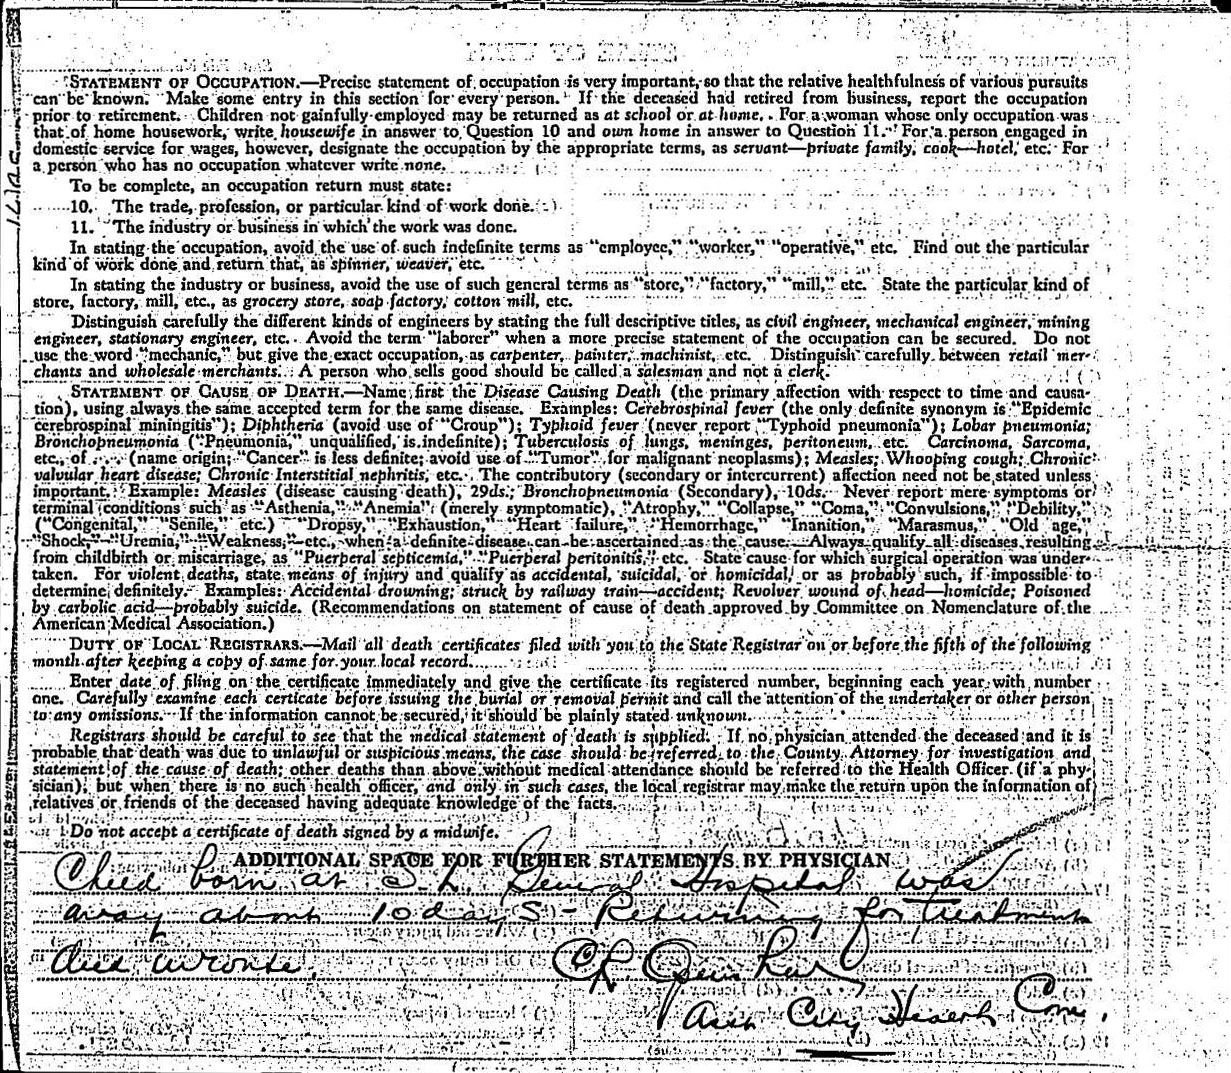 STATEMENT OF OCCUPATION.—Precise statement of occupation is very important, so that the relative healthfulness of various pursuits
can be known. Make some entry in this section for every person. If the deceased had retired from business, report the occupation
prior to retirement. Children not gainfully employed may be returned as at school or at home. For a woman whose only occupation was
that of home housework, write housewife in answer to Question 10 and own home in answer to Question 11. For a person engaged in
domestic service for wages, however, designate the occupation by the appropriate terms, as servant—private family, cook—hotel, etc. For
a person who has no occupation whatever write none.
To be complete, an occupation return must state:
10. The trade, profession, or particular kind of work done.
11. The industry or business in which the work was done.
In stating the occupation, avoid the use of such indefinite terms as "employee," "worker," "operative," etc. Find out the particular
kind of work done and return that, as spinner, weaver, etc.
In stating the industry or business, avoid the use of such general terms as "store," "factory," "mill," etc. State the particular kind of
store, factory, mill, etc., as grocery store, soap factory, cotton mill, etc.
Distinguish carefully the different kinds of engineers by stating the full descriptive titles, as civil engineer, mechanical engineer, mining
engineer, stationary engineer, etc. Avoid the term "laborer" when a more precise statement of the occupation can be secured. Do not
use the word "mechanic," but give the exact occupation, as carpenter, painter, machinist, etc. Distinguish carefully between retail mer-
chants and wholesale merchants. A person who sells good should be called a salesman and not a clerk.
STATEMENT OF CAUSE OF DEATH.—Name first the Disease Causing Death (the primary affection with respect to time and causa-
tion), using always the same accepted term for the same disease. Examples: Cerebrospinal fever (the only definite synonym is "Epidemic
cerebrospinal miningitis"); Diphtheria (avoid use of "Croup"); Typhoid fever (never report "Typhoid pneumonia"); Lobar pneumonia;
Bronchopneumonia ("Pneumonia," unqualified, is indefinite); Tuberculosis of lungs, meninges, peritoneum, etc. Carcinoma, Sarcoma,
etc., of .... (name origin; "Cancer" is less definite; avoid use of "Tumor" for malignant neoplasms); Measles; Whooping cough; Chronic
valvular heart disease; Chronic Interstitial nephritis, etc. The contributory (secondary or intercurrent) affection need not be stated unless
important. Example: Measles (disease causing death), 29ds.; Bronchopneumonia (Secondary), 10ds. Never report mere symptoms or
terminal conditions such as "Asthenia," "Anemia" (merely symptomatic), "Atrophy," "Collapse," "Coma," "Convulsions," "Debility,"
("Congenital," "Senile," etc.) "Dropsy," "Exhaustion," "Heart failure," "Hemorrhage," "Inanition," "Marasmus," "Old age,"
"Shock," "Uremia," "Weakness," etc., when a definite disease can be ascertained as the cause. Always qualify all diseases resulting
from childbirth or miscarriage, as "Puerperal septicemia," "Puerperal peritonitis," etc. State cause for which surgical operation was under-
taken. For violent deaths, state means of injury and qualify as accidental, suicidal, or homicidal, or as probably such, if impossible to
determine definitely. Examples: Accidental drowning; struck by railway train—accident; Revolver wound of head—homicide; Poisoned
by carbolic acid—probably suicide. (Recommendations on statement of cause of death approved by Committee on Nomenclature of the
American Medical Association.)
DUTY OF LOCAL REGISTRARS.—Mail all death certificates filed with you to the State Registrar on or before the fifth of the following
month after keeping a copy of same for your local record.
Enter date of filing on the certificate immediately and give the certificate its registered number, beginning each year with number
one. Carefully examine each certicate before issuing the burial or removal permit and call the attention of the undertaker or other person
to any omissions. If the information cannot be secured, it should be plainly stated unknown.
Registrars should be careful to see that the medical statement of death is supplied. If no physician attended the deceased and it is
probable that death was due to unlawful or suspicious means, the case should be referred to the County Attorney for investigation and
statement of the cause of death; other deaths than above without medical attendance should be referred to the Health Officer (if a phy-
sician); but when there is no such health officer, and only in such cases, the local registrar may make the return upon the information of
relatives or friends of the deceased having adequate knowledge of the facts.
Do not accept a certificate of death signed by a midwife.
ADDITIONAL SPACE FOR FURTHER STATEMENTS BY PHYSICIAN
Child born at S. L. General Hospital was
away about 10 days - Returning for treatment
died
City Health Com.